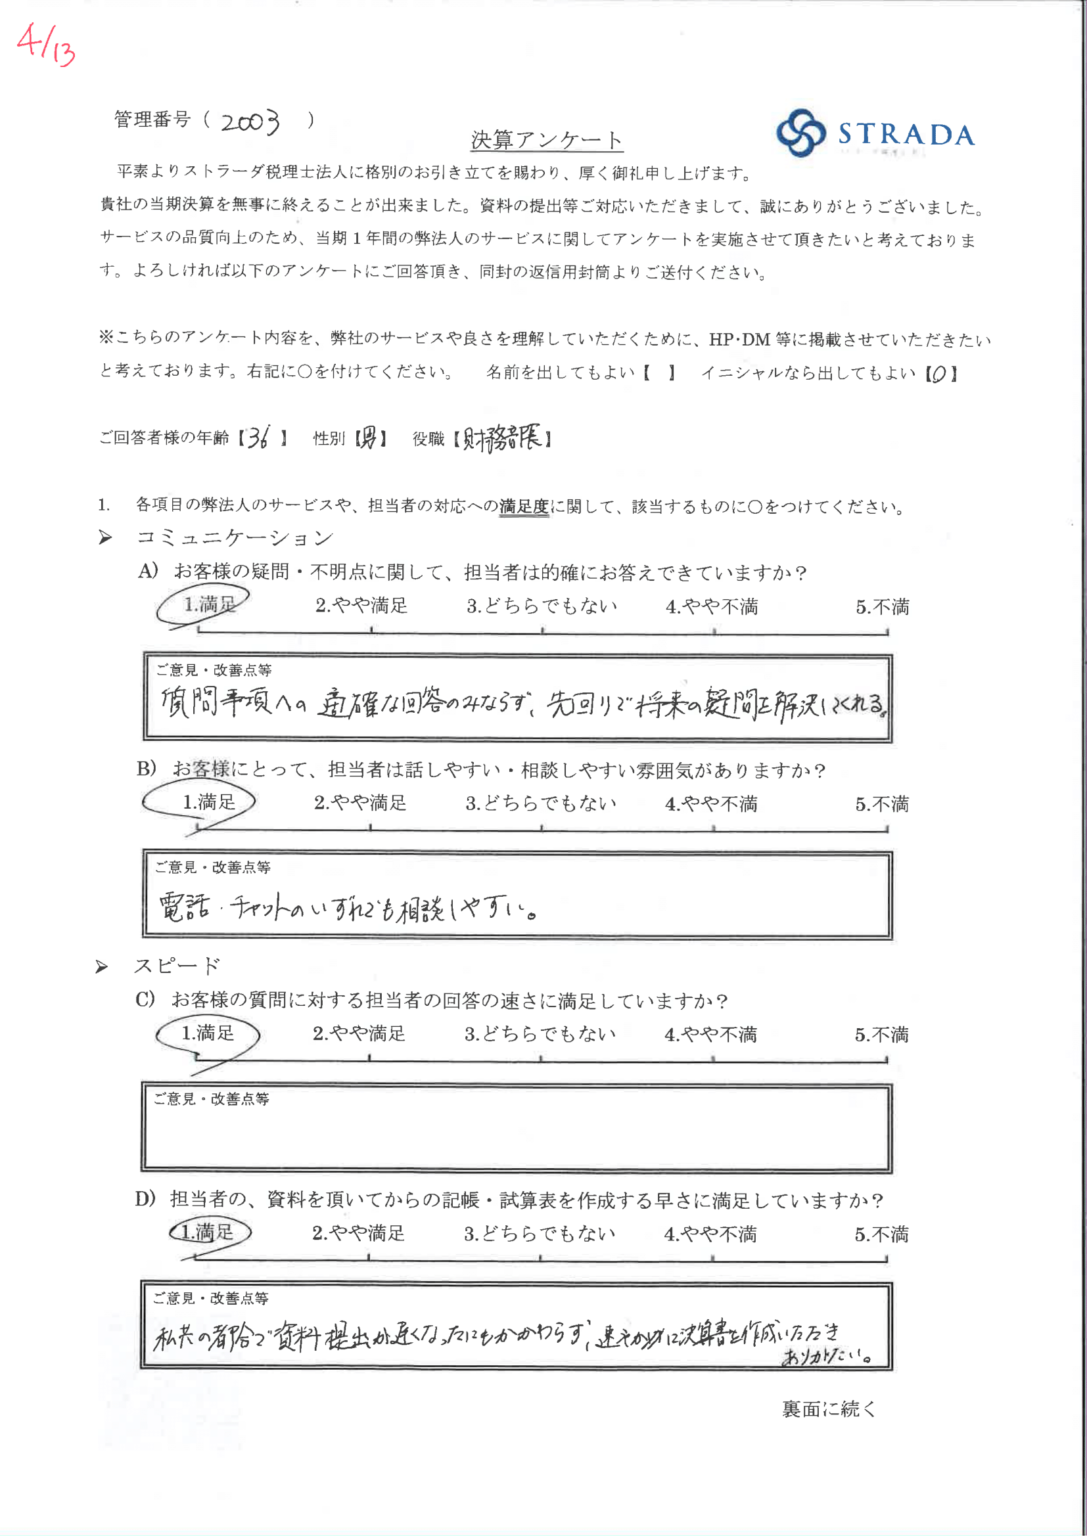 4/13
管理番号（ 2003 ）
決算アンケート
STRADA
平素よりストラーダ税理士法人に格別のお引き立てを賜わり、厚く御礼申し上げます。
貴社の当期決算を無事に終えることが出来ました。資料の提出等ご対応いただきまして、誠にありがとうございました。
サービスの品質向上のため、当期1年間の弊法人のサービスに関してアンケートを実施させて頂きたいと考えておりま
す。よろしければ以下のアンケートにご回答頂き、同封の返信用封筒よりご送付ください。
※こちらのアンケート内容を、弊社のサービスや良さを理解していただくために、HP・DM 等に掲載させていただきたい
と考えております。右記に〇を付けてください。 名前を出してもよい【 】 イニシャルなら出してもよい【〇】
ご回答者様の年齢【36 】 性別【男】 役職【財務部長】
1. 各項目の弊法人のサービスや、担当者の対応への満足度に関して、該当するものに〇をつけてください。
➢ コミュニケーション
A) お客様の疑問・不明点に関して、担当者は的確にお答えできていますか？
1.満足 2.やや満足 3.どちらでもない 4.やや不満 5.不満
ご意見・改善点等
質問事項への適確な回答のみならず、先回りで将来の疑問を解決してくれる。
B) お客様にとって、担当者は話しやすい・相談しやすい雰囲気がありますか？
1.満足 2.やや満足 3.どちらでもない 4.やや不満 5.不満
ご意見・改善点等
電話・チャットのいずれでも相談しやすい。
➢ スピード
C) お客様の質問に対する担当者の回答の速さに満足していますか？
1.満足 2.やや満足 3.どちらでもない 4.やや不満 5.不満
ご意見・改善点等
D) 担当者の、資料を頂いてからの記帳・試算表を作成する早さに満足していますか？
1.満足 2.やや満足 3.どちらでもない 4.やや不満 5.不満
ご意見・改善点等
私共の都合で資料提出が遅くなったにもかかわらず、速やかに決算書を作成いただき
ありがたい。
裏面に続く